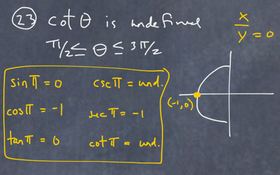 23 cot θ is undefined
π/2 ≤ θ ≤ 3π/2
x/y y = 0
sin π = 0 csc π = und.
cos π = -1 sec π = -1
tan π = 0 cot π = und.
(-1,0)